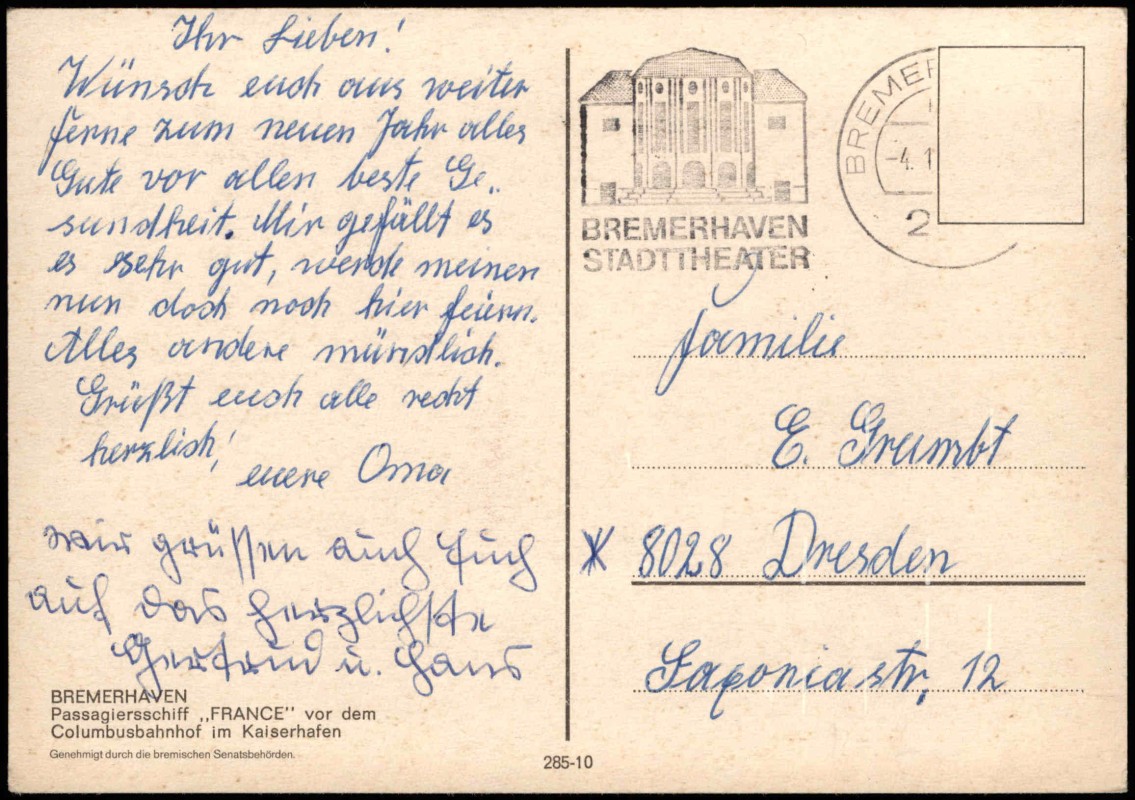 Ihr Lieben!
Wünsch euch aus weiter
ferne zum neuen Jahr alles
Gute vor allen beste Ge..
sundheit. Mir gefällt es
es sehr gut, werde meinen
nun doch noch hier feiern.
Alles andere mündlich.
Grüßt euch alle recht
herzlich!
euere Oma
Wir grüssen auch Euch
auf das herzlichste
Gertrud u. Hans
BREMERHAVEN
Passagiersschiff „FRANCE" vor dem
Columbusbahnhof im Kaiserhafen
Genehmigt durch die bremischen Senatsbehörden.
285-10
BREMERHAVEN
STADTTHEATER
BREMER
-4. 1
2
Familie
E. Grumbt
8028 Dresden
Saxoniastr. 12